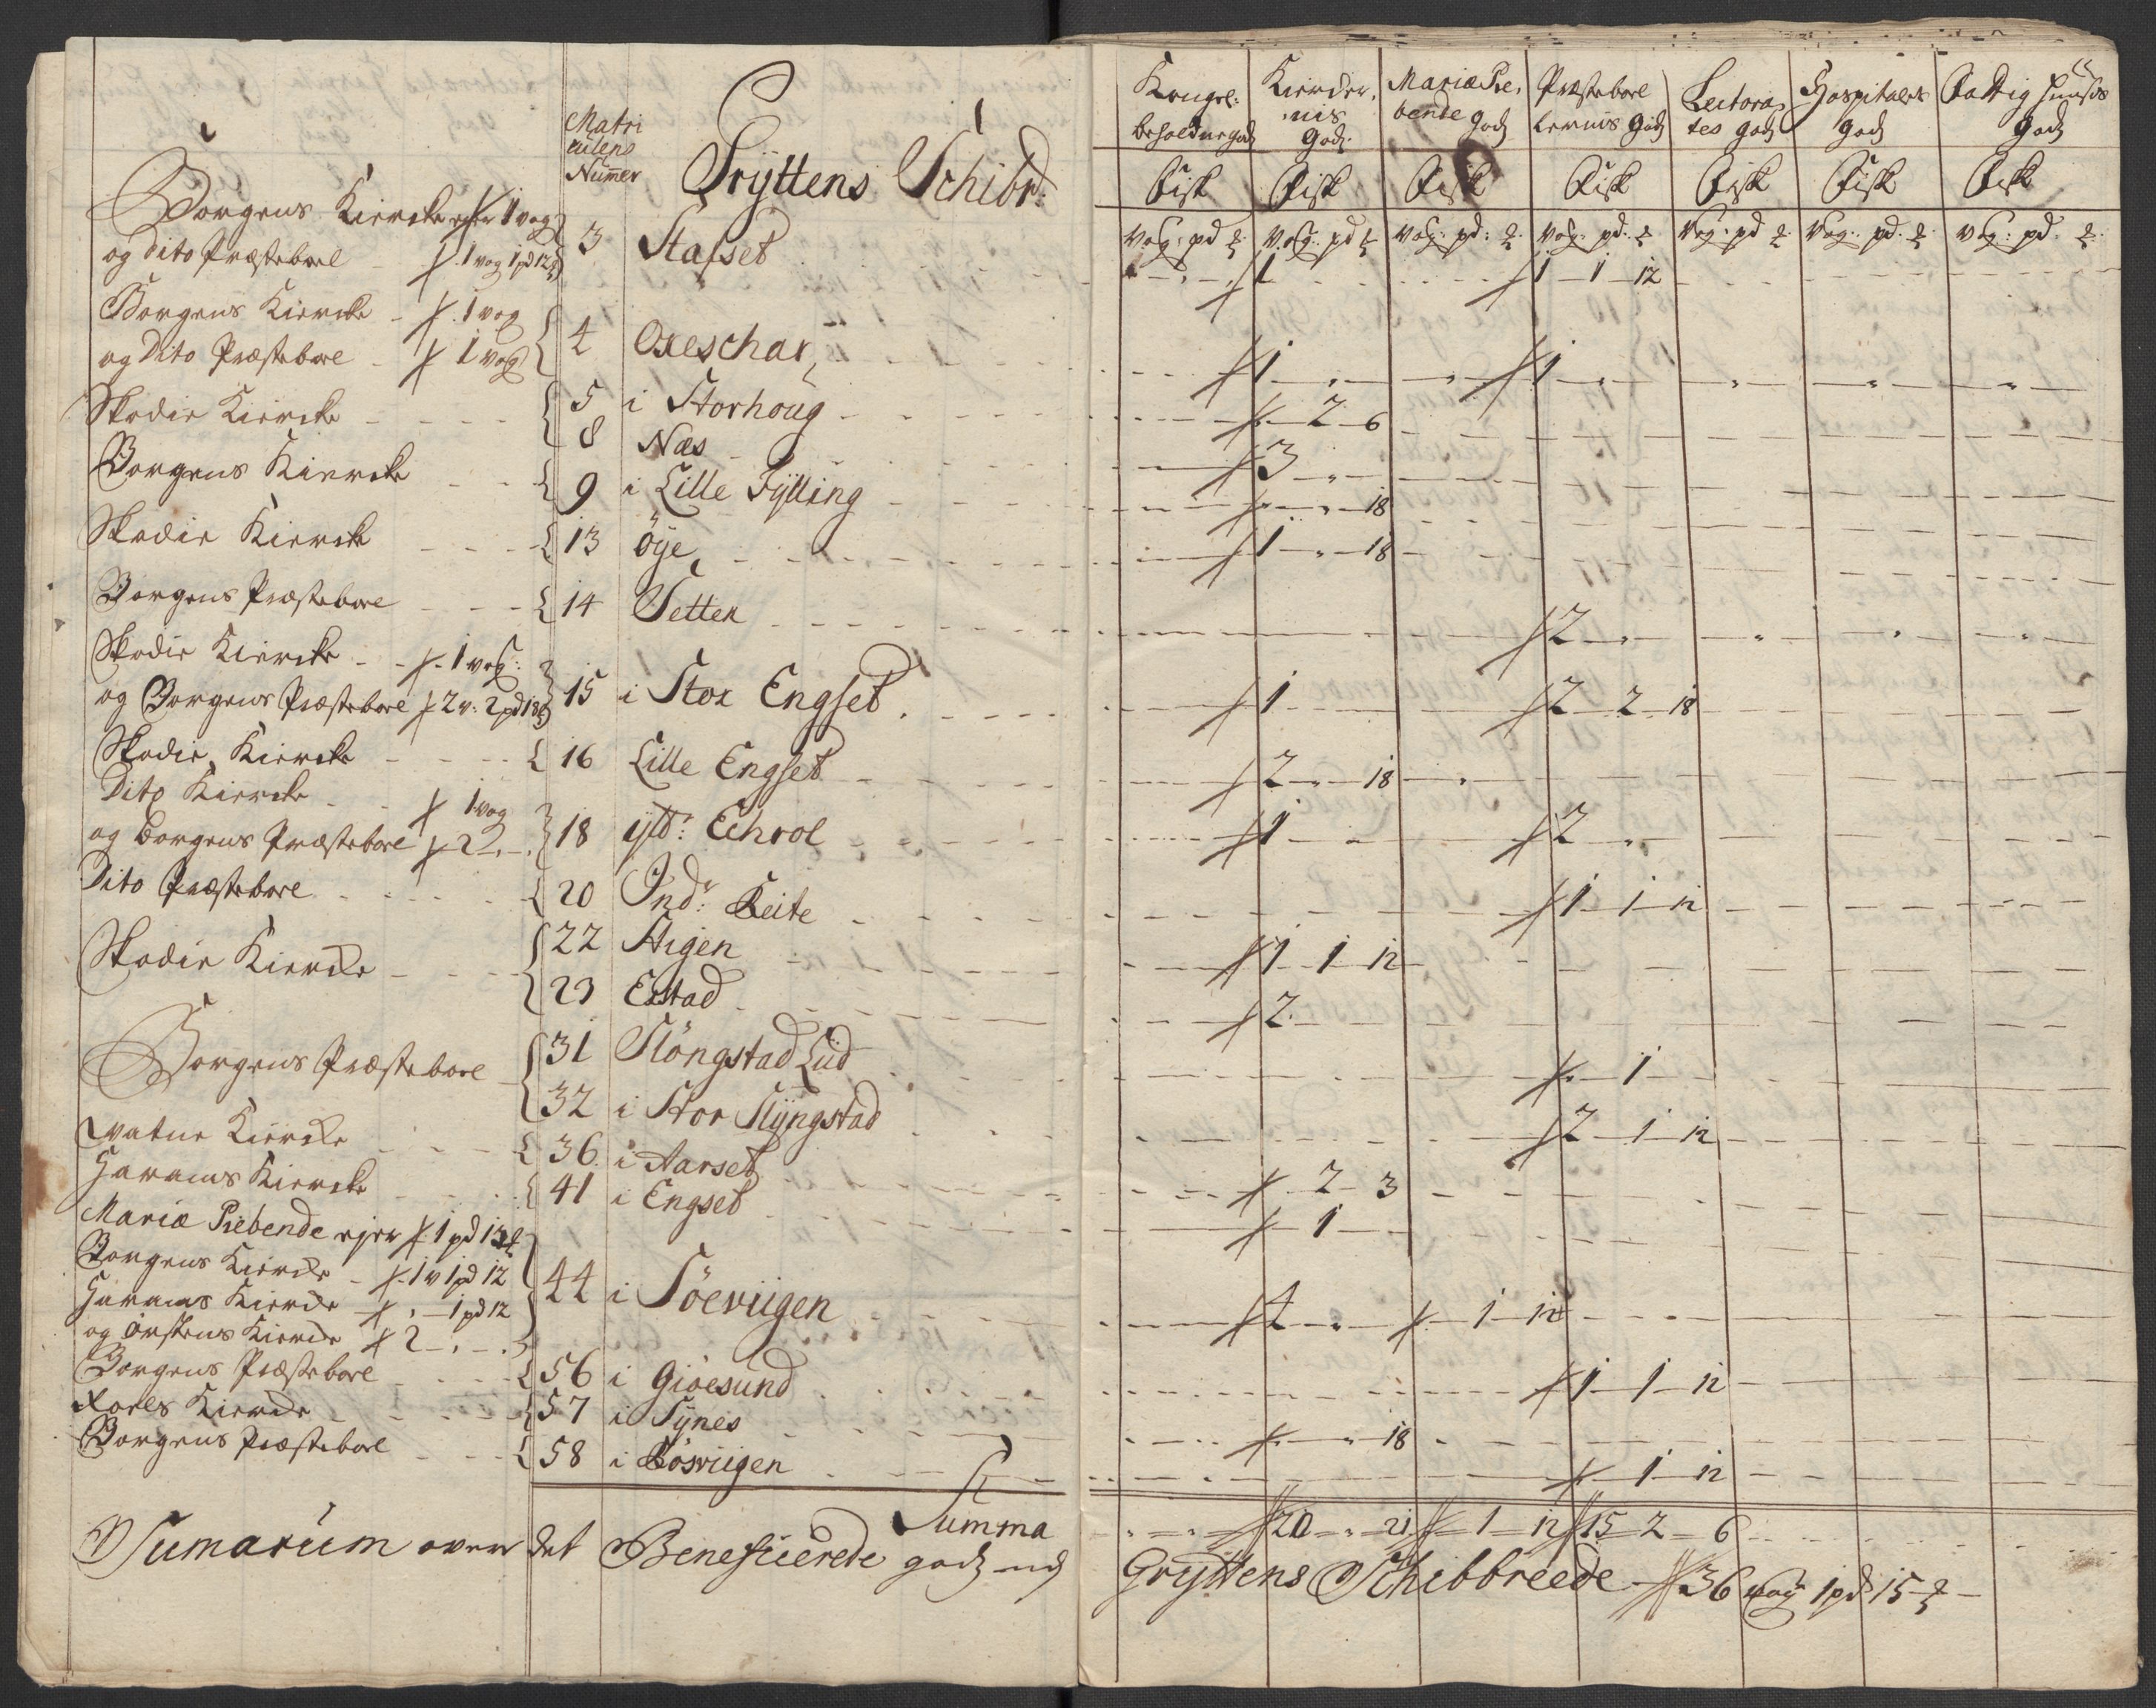 Matri
culens
Numer
Gryttens Schibr:
Kongel: beholdne godz
Kierder, nis godz
Mariæ Præ, bende godz
Præstebole lernis godz
Lectora, tes godz
Hospitalets godz
Fattig huusis godz
Fisk Fisk Fisk Fisk Fisk Fisk Fisk
vog: pd ℔ vog: pd ℔ vog: pd: ℔ vog: pd: ℔ vog: pd ℔ vog: pd. ℔ vog: pd: ℔
Borgens Kiercke ejer 1 vog
og Dito Præstebole - 1 vog 1 pd 12 ℔ 3 Stafset 1 1 1 12
Borgens Kiercke - 1 vog
og Dito Præstebole - 1 vog 4 Oxeschar 1 1
Skodie Kiercke 5 i Storhoug 2 6
8 Næs 3
Borgens Kiercke 9 i Lille Fylling 18
Skodie Kiercke 13 Öye 1 18
Borgens Præstebole 14 Setten 2
Skodie Kiercke - 1 vog:
og Borgens Præstebole 2 v: 2 pd 18 ℔ 15 i Stor Engset 1 2 2 18
Skodie Kiercke 16 Lille Engset 2 18
Dito Kiercke 1 vog
og Borgens Præstebole 2 18 ytr: Echrol 1 2
Dito Præstebole 20 Indr: Leite 1 1 12
Skodie Kiercke 22 Stigen 1 1 12
23 Erstad 2
Borgens Præstebole 31 Slöngstad Lid 1
32 i Stor Slyngstad 2 1 12
Vatne Kiercke 36 i Aarset 2 3
Harams Kiercke 41 i Engset 1
Mariæ Prebende ejer 1 pd 12 ℔
Borgens Kiercke - 1 v 1 pd 12
Harams Kiercke 1 pd 12
og Örstens Kiercke 2 44 i Söeviigen 4 1 12
Borgens Præstebole 56 i Giöesund 1 1 12
Roels Kiercke 57 i Synes 18
Borgens Præstebole 58 i Rösviigen 1 12
Summa 20 21 1 12 15 2 6
Sumarum over det Beneficerede godz udj Gryttens Schibbreede 36 vog 1 pd 15 ℔